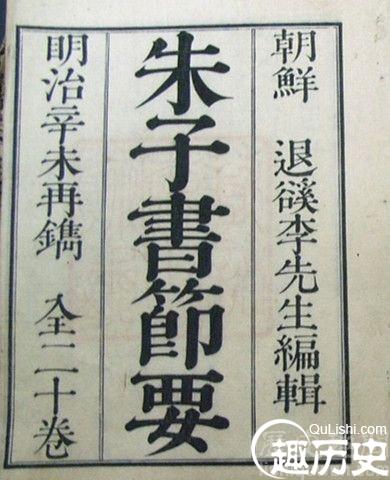 朝鮮 退谿李先生編輯
朱子書節要
明治辛未再鐫 全二十巻
QuLishi.com
趣历史